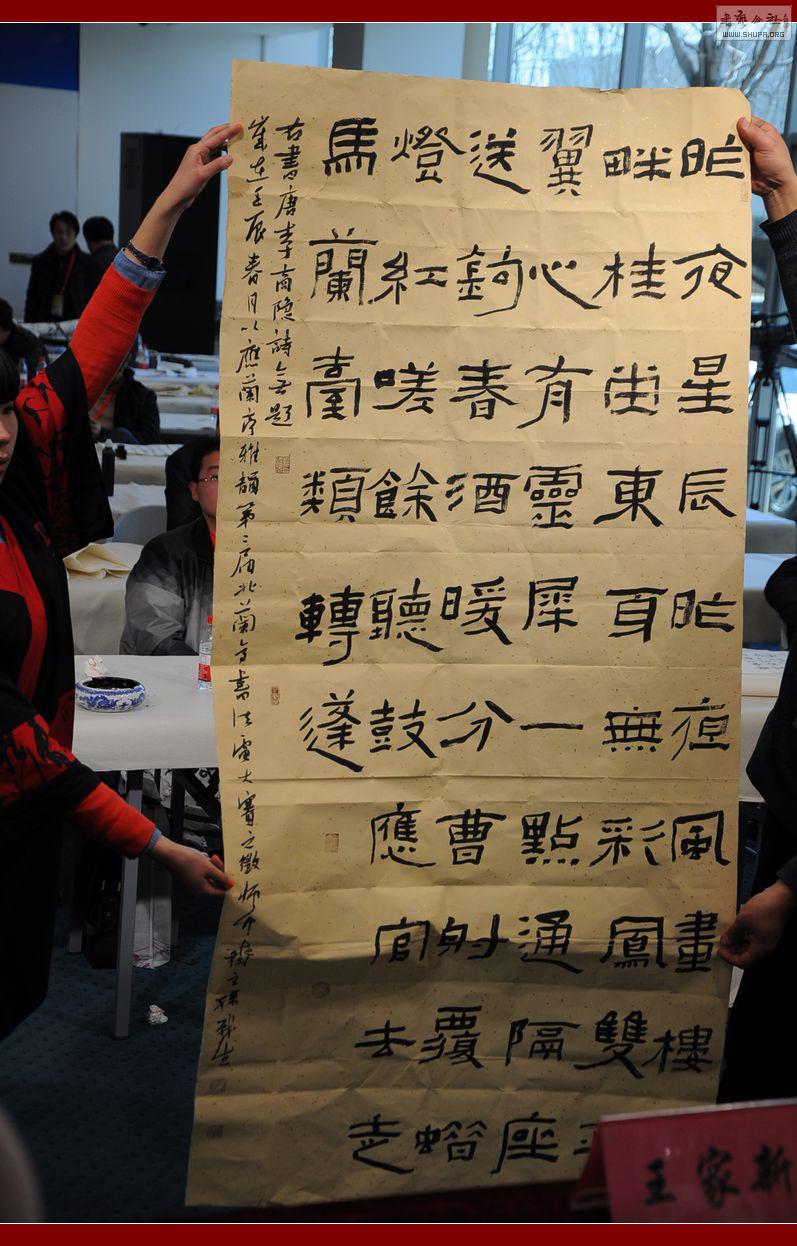 書藝公社
WWW.SHUFA.ORG
昨夜星辰昨夜風畫樓
畔桂堂東身無彩鳳雙
翼心有靈犀一點通隔座
送鉤春酒暖分曹射覆蜡
燈紅嗟餘聽鼓應官去走
馬蘭臺類轉蓬
右書唐李商隐詩無題
歲在壬辰春月以應蘭亭雅韻第二届北蘭亭書法電大賽之徵師
王家新